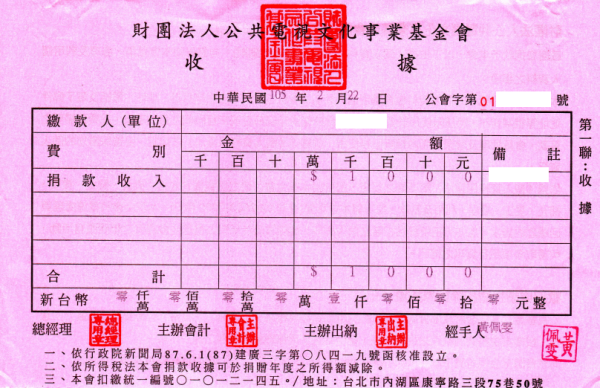 財團法人公共電視文化事業基金會
收 據
中華民國 105 年 2 月 22 日 公會字第 01 號
繳款人(單位)
費別 金額 備註
千 百 十 萬 千 百 十 元
捐款收入 $ 1 0 0 0
合計 $ 1 0 0 0
新台幣 零 仟 零 佰 零 拾 零 萬 壹 仟 零 佰 零 拾 零 元整
總經理 主辦會計 主辦出納 經手人 黃佩雯
一、依行政院新聞局87.6.1(87)建廣三字第○八四一九號函核准設立。
二、依所得稅法本會捐款收據可於捐贈年度之所得額減除。
三、本會扣繳統一編號○一○一二一四五。/地址：台北市內湖區康寧路三段75巷50號
第一聯：收據